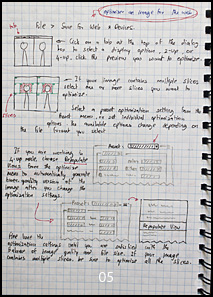 Optimize an image for the web
File > Save for Web & Devices.
Click on a tab at the top of the dialog
box to select a display option: 2-up or
4-up. click the preview you want to optimize
If your image contains multiple slices
select one or more slices you want to
optimize.
Select a preset optimization setting from the
Preset menu, or set individual optimization
options. The available options change depending on
the file format you select
If you are working in
4-up mode, choose Repopulate
Views from the optimization
menu to automatically generate
lower-quality versions of the
image after you change the
optimization settings.
Preset:
Preset:
Repopulate Views
Fine tune the
optimization settings until you are satisfied with the
balance of image quality and file size. If your image
contains multiple slices, be sure to optimize all the slices.
05